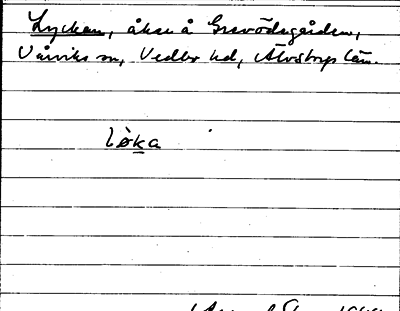 Lyckan, åker å Gravödsgården,
Vårviks sn, Vedbo hd, Älvsborgs län.
lòka